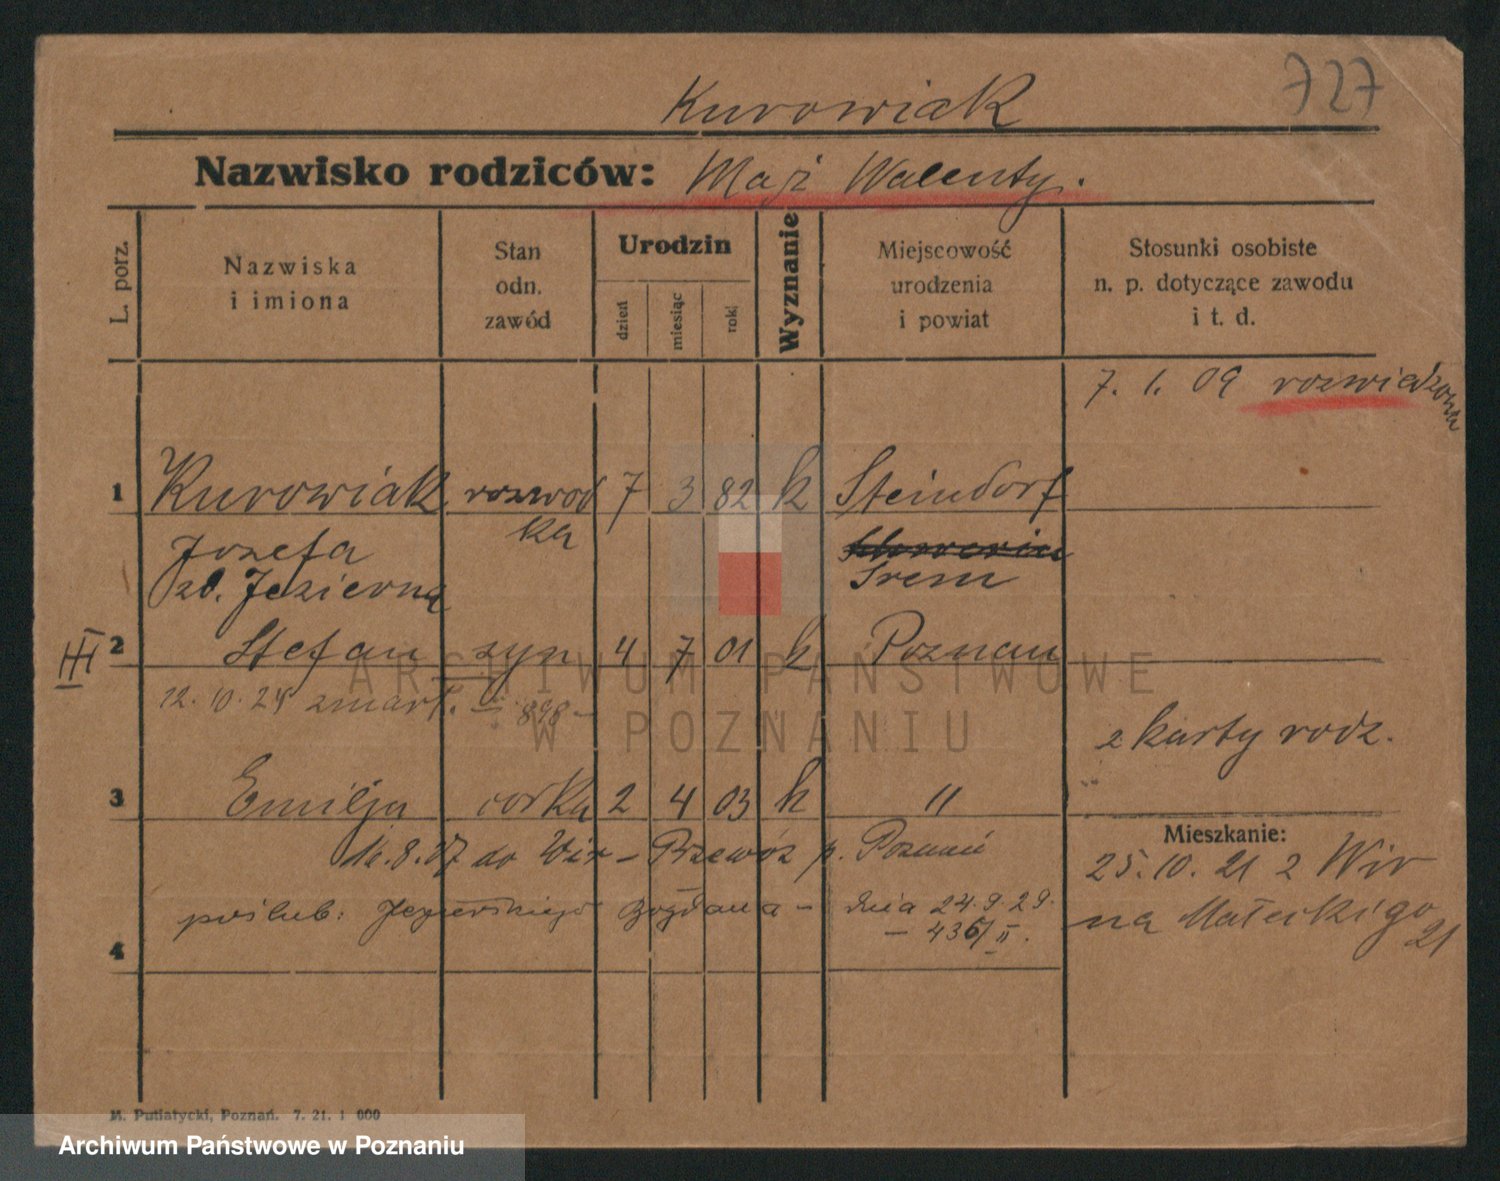 727
Kurowiak
Nazwisko rodziców: Mąż Walenty.
L. porz.
Nazwiska
i imiona
Stan
odn.
zawód
Urodzin
dzień
miesiąc
rok
Wyznanie
Miejscowość
urodzenia
i powiat
Stosunki osobiste
n. p. dotyczące zawodu
i t. d.
7. 1. 09 rozwiedzona
1 Kurowiak rozwod 7 3 82 k Steindorf
ka
Józefa
zd. Jezierną
Śrem
III 2 Stefan syn 4 7 01 k Poznan
12. 10. 24 zmarł. – 898 –
z karty rodz.
3 Emilja corka 2 4 03 k "
Mieszkanie:
16. 8. 27 do Wir – p. Poznań
25. 10. 21 z Wir
poślub: Jezierskiego Bogdana – dnia 24. 9. 29.
na Małeckigo
– 436/II.
21
4
M. Putiatycki, Poznań. 7. 21. 1 000
ARCHIWUM PAŃSTWOWE
W POZNANIU
Archiwum Państwowe w Poznaniu